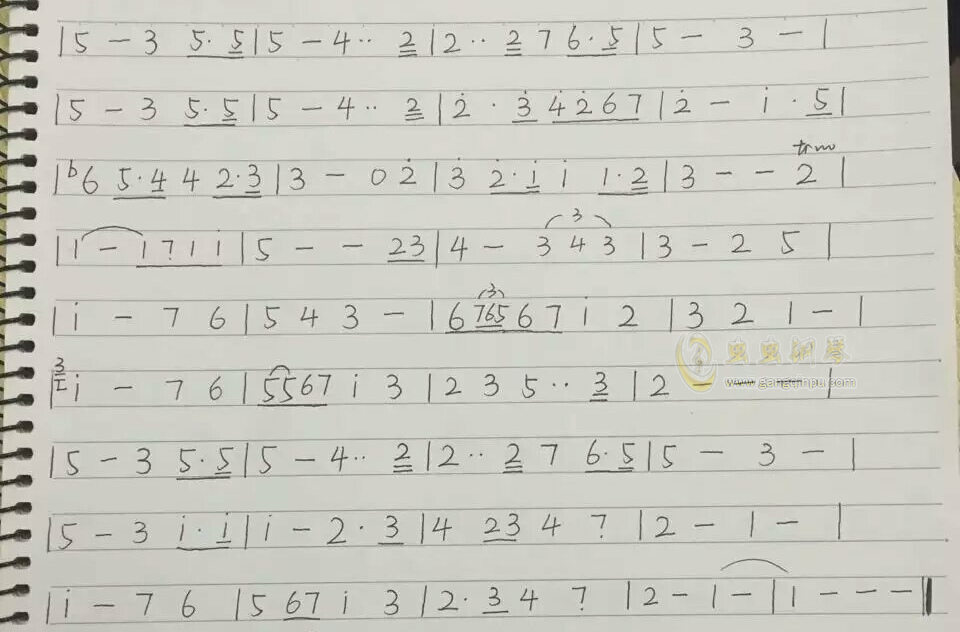 |5 - 3 5·5|5 - 4·· 2|2·· 2 7 6·5|5 - 3 -|
|5 - 3 5·5|5 - 4·· 2|2̇ · 3̇ 4̇ 2̇ 6 7|2̇ - i · 5|
tr
|b6 5·4 4 2·3|3 - 0 2̇|3̇ 2̇·i i 1·2|3 - - 2|
3
|1 - 1 7 1 i|5 - - 23|4 - 3 4 3|3 - 2 5|
3
|i - 7 6|5 4 3 -|6 765 6 7 i 2|3 2 1 -|
3
|i - 7 6|5567 i 3|2 3 5·· 3|2 - - -|
虫虫钢琴
www.gangqinpu.com
|5 - 3 5·5|5 - 4·· 2|2·· 2 7 6·5|5 - 3 -|
|5 - 3 i·i|i - 2·3|4 23 4 ?|2 - 1 -|
|i - 7 6|5 67 i 3|2·3 4 ?|2 - 1 -|1 - - -||